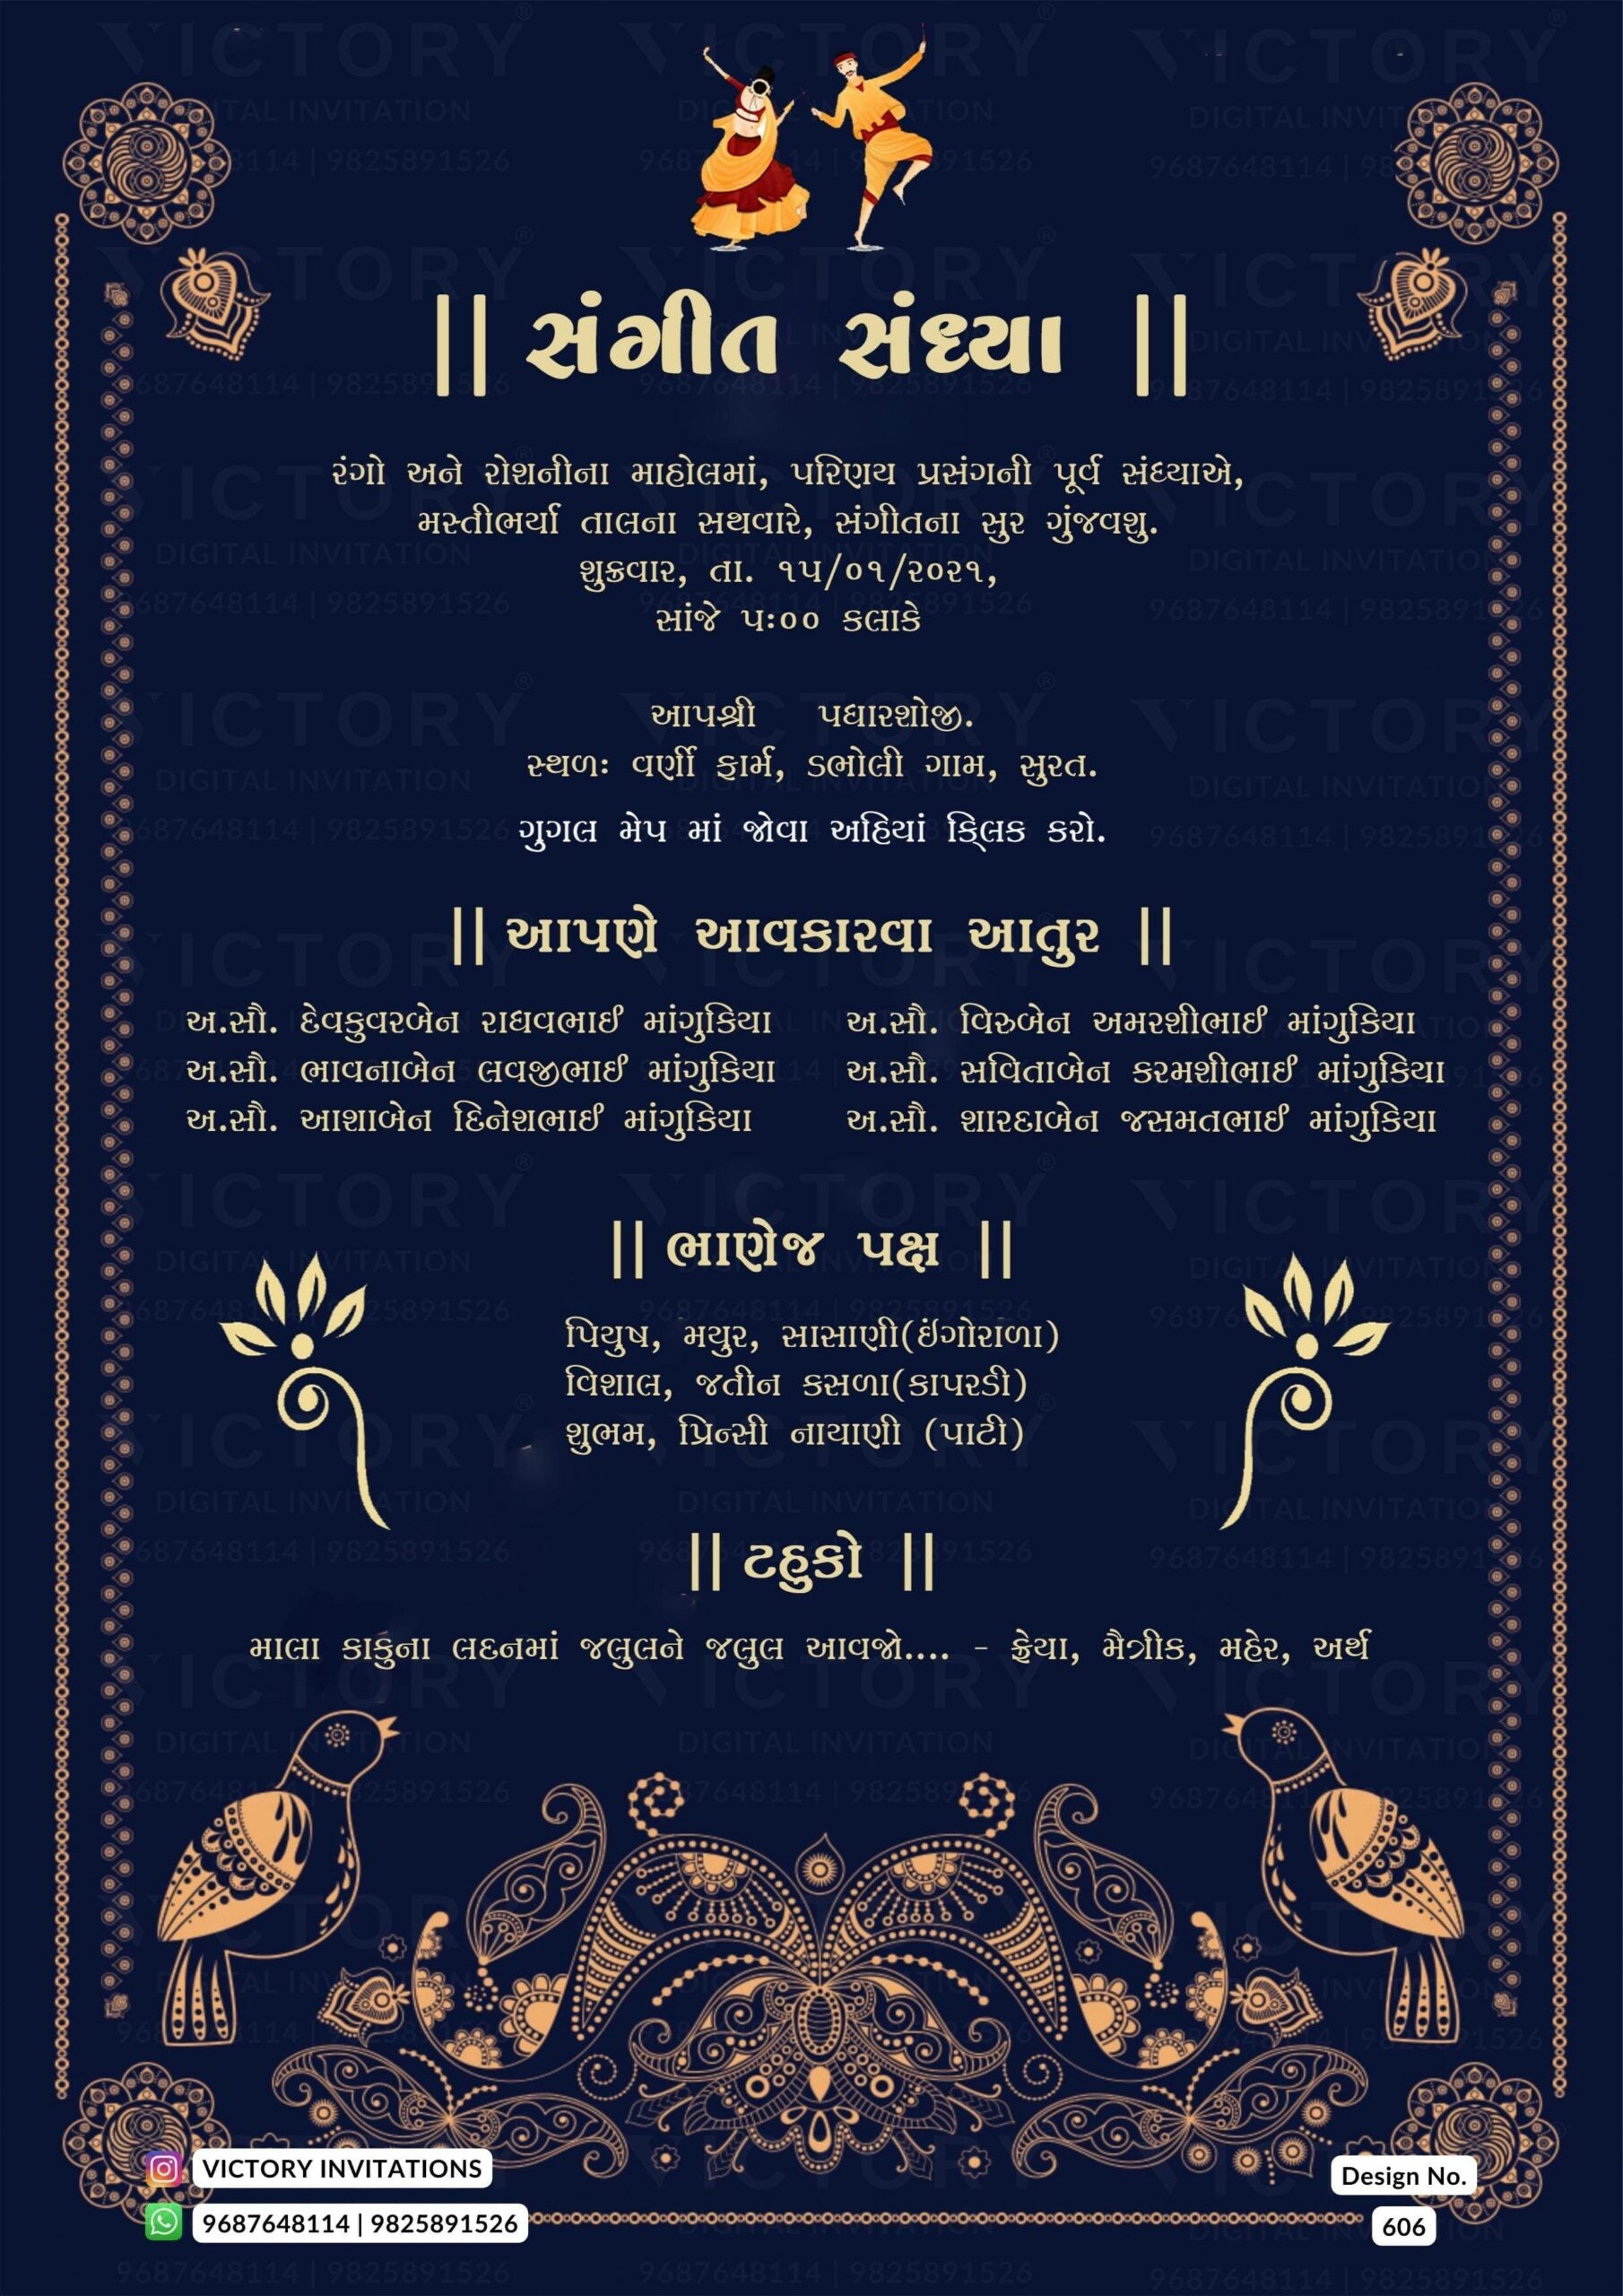 || સંગીત સંધ્યા ||
રંગો અને રોશનીના માહોલમાં, પરિણય પ્રસંગની પૂર્વ સંધ્યાએ,
મસ્તીભર્યા તાલના સથવારે, સંગીતના સુર ગુંજવશુ.
શુક્રવાર, તા. ૧૫/૦૧/૨૦૨૧,
સાંજે ૫:૦૦ કલાકે
આપશ્રી પધારશોજી.
સ્થળઃ વર્ણી ફાર્મ, ડભોલી ગામ, સુરત.
ગુગલ મેપ માં જોવા અહિયાં ક્લિક કરો.
|| આપણે આવકારવા આતુર ||
અ.સૌ. દેવકુવરબેન રાઘવભાઈ માંગુકિયા
અ.સૌ. ભાવનાબેન લવજીભાઈ માંગુકિયા
અ.સૌ. આશાબેન દિનેશભાઈ માંગુકિયા
અ.સૌ. વિરુબેન અમરશીભાઈ માંગુકિયા
અ.સૌ. સવિતાબેન કરમશીભાઈ માંગુકિયા
અ.સૌ. શારદાબેન જસમતભાઈ માંગુકિયા
|| ભાણેજ પક્ષ ||
પિયુષ, મયુર, સાસાણી(ઇંગોરાળા)
વિશાલ, જતીન કસળા(કાપરડી)
શુભમ, પ્રિન્સી નાયાણી (પાટી)
|| ટહુકો ||
માલા કાકુના લદનમાં જલુલને જલુલ આવજો.... - ક્રેયા, મૈત્રીક, મહેર, અર્થ
VICTORY INVITATIONS
9687648114 | 9825891526
Design No.
606
VICTORY
DIGITAL INVITATION
9687648114 | 9825891526